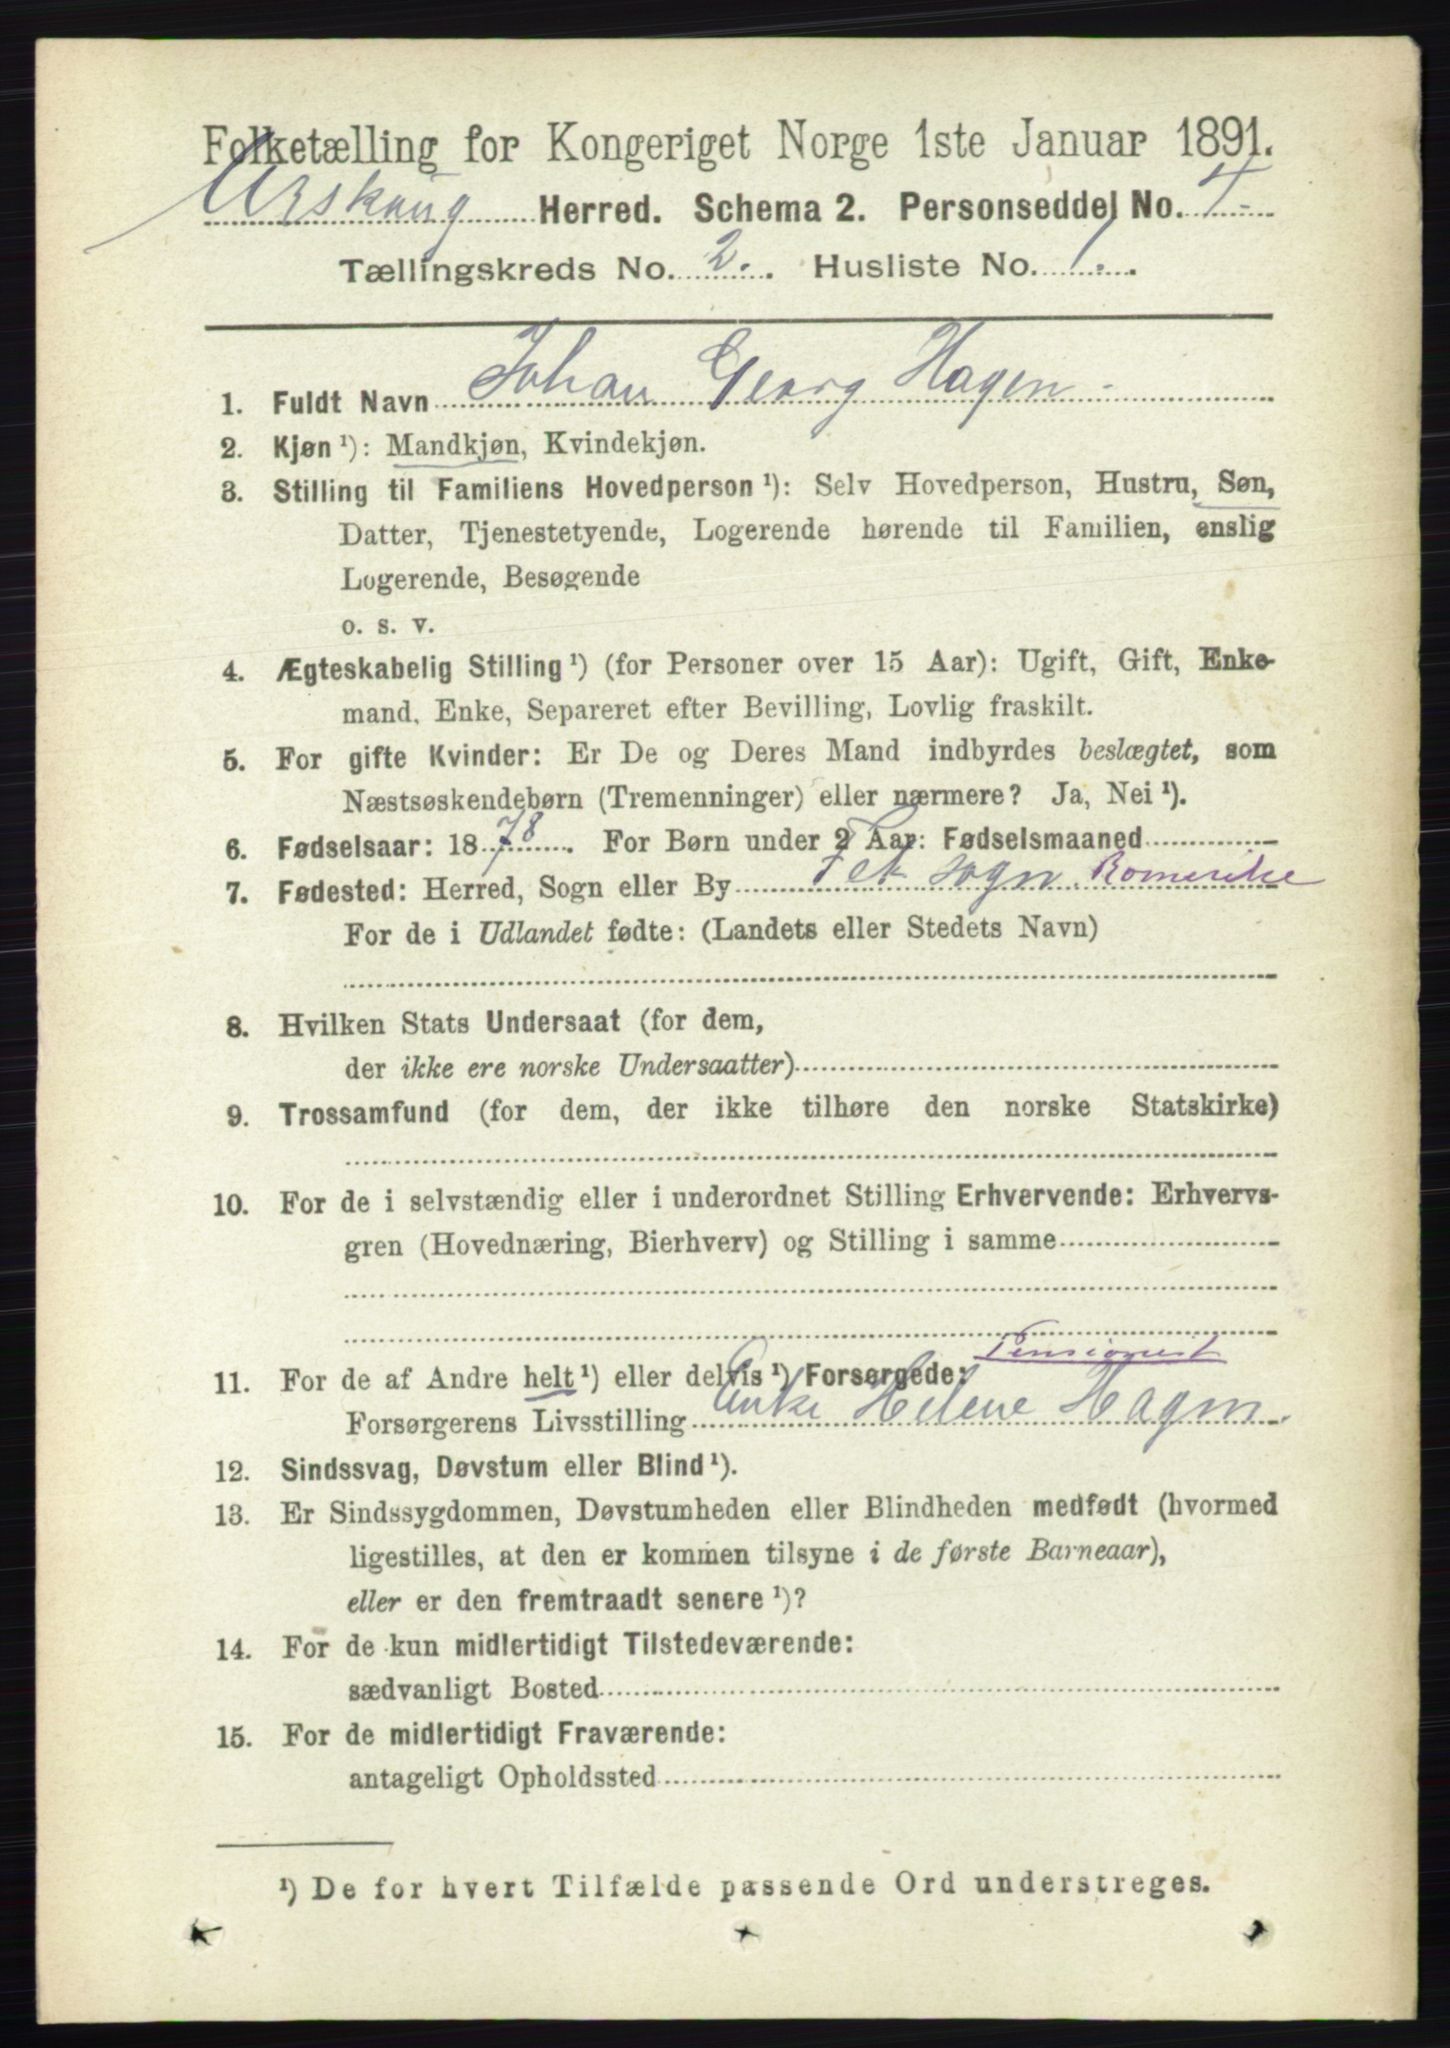 Folketælling for Kongeriget Norge 1ste Januar 1891.
Urskoug Herred. Schema 2. Personseddel No. 4.
Tællingskreds No. 2. Husliste No. 1.
1. Fuldt Navn Johan Georg Hagen.
2. Kjøn ¹): Mandkjøn, Kvindekjøn.
3. Stilling til Familiens Hovedperson ¹): Selv Hovedperson, Hustru, Søn,
Datter, Tjenestetyende, Logerende hørende til Familien, enslig
Logerende, Besøgende
o. s. v.
4. Ægteskabelig Stilling ¹) (for Personer over 15 Aar): Ugift, Gift, Enke-
mand, Enke, Separeret efter Bevilling, Lovlig fraskilt.
5. For gifte Kvinder: Er De og Deres Mand indbyrdes beslægtet, som
Næstsøskendebørn (Tremenninger) eller nærmere? Ja, Nei ¹).
6. Fødselsaar: 1878. For Børn under 2 Aar: Fødselsmaaned
7. Fødested: Herred, Sogn eller By Fet sogn. Romerike
For de i Udlandet fødte: (Landets eller Stedets Navn)
8. Hvilken Stats Undersaat (for dem,
der ikke ere norske Undersaatter)
9. Trossamfund (for dem, der ikke tilhøre den norske Statskirke)
10. For de i selvstændig eller i underordnet Stilling Erhvervende: Erhvervs-
gren (Hovednæring, Bierhverv) og Stilling i samme
Pensionist
11. For de af Andre helt ¹) eller delvis ¹) Forsørgede:
Forsørgerens Livsstilling Enke Helene Hagen.
12. Sindssvag, Døvstum eller Blind ¹).
13. Er Sindssygdommen, Døvstumheden eller Blindheden medfødt (hvormed
ligestilles, at den er kommen tilsyne i de første Barneaar),
eller er den fremtraadt senere ¹)?
14. For de kun midlertidigt Tilstedeværende:
sædvanligt Bosted
15. For de midlertidigt Fraværende:
antageligt Opholdssted
¹) De for hvert Tilfælde passende Ord understreges.